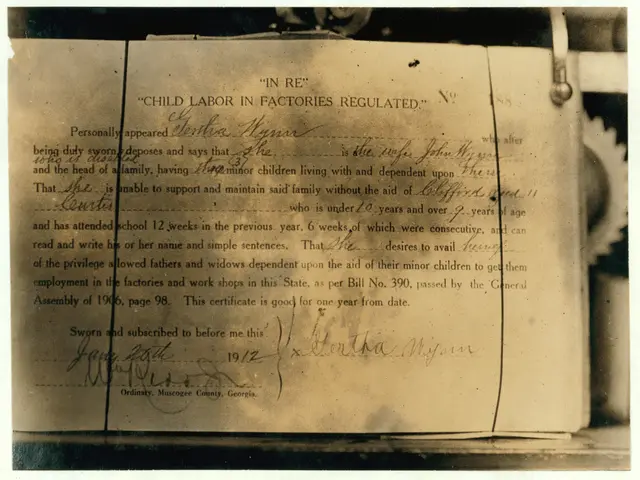 "IN RE"
"CHILD LABOR IN FACTORIES REGULATED." No 188
Personally appeared Wynn who after
being duly sworn, deposes and says that She is the wife John Wynn
and the head of a family, having (3) minor children living with and dependent upon them
That She is unable to support and maintain said family without the aid of Clifford and 11
Curtis who is under 10 years and over 9 years of age
and has attended school 12 weeks in the previous year, 6 weeks of which were consecutive, and can
read and write his or her name and simple sentences. That She desires to avail
of the privilege allowed fathers and widows dependent upon the aid of their minor children to get them
employment in the factories and work shops in this State, as per Bill No. 390, passed by the General
Assembly of 1906, page 98. This certificate is good for one year from date.
Sworn and subscribed to before me this
Jany 20th 1912 x Wynn
Ordinary, Muscogee County, Georgia.